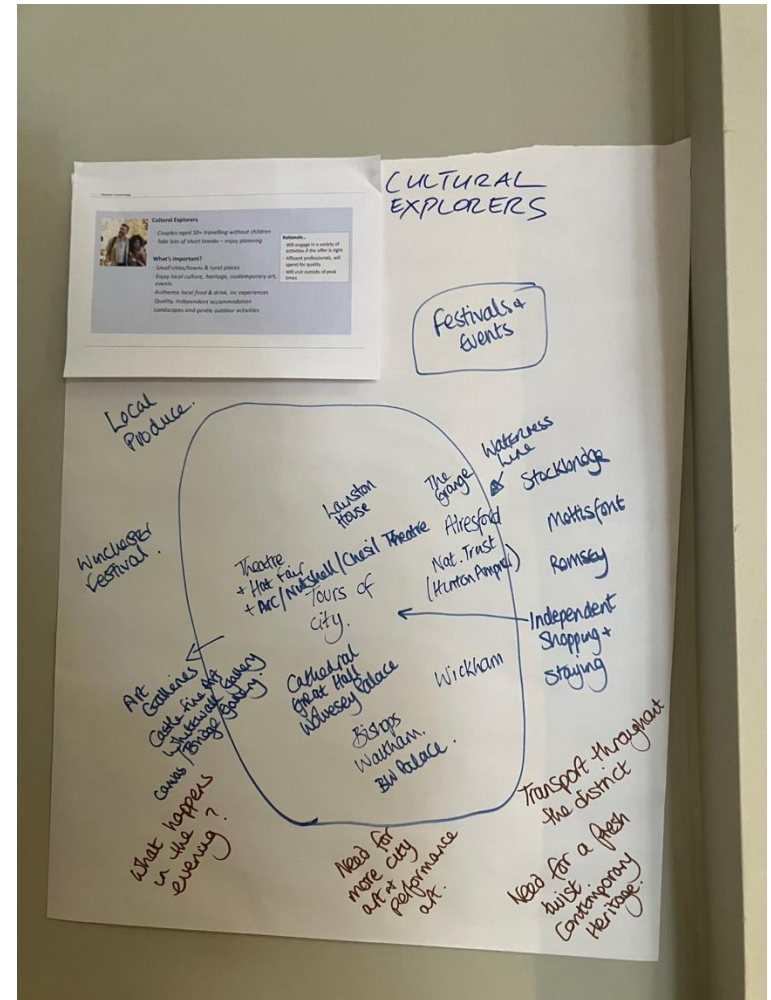 CULTURAL
EXPLORERS
Cultural Explorers
Couples aged 50+ travelling without children
Take lots of short breaks – enjoy planning
What's important?
Small cities/towns & rural places
Enjoy local culture, heritage, contemporary art,
events
Authentic local food & drink, inc experiences
Quality, independent accommodation
Landscapes and gentle outdoor activities
Rationale...
Will engage in a variety of
activities if the offer is right
Affluent professionals, will
spend for quality
Will visit outside of peak
times
Festivals +
Events
Local
Produce.
Winchester
Festival.
Lainston
House
The
Grange
Watercress
Line
Alresford
Nat. Trust
(Hinton Ampner)
Stockbridge
Mottisfont
Romsey
Independent
Shopping +
Staying
Theatre
+ Hat Fair
+ Arc/Nutshell/Chesil Theatre
Tours of
city.
Cathedral
Great Hall
Wolvesey Palace
Wickham
Bishops
Waltham.
BW Palace.
Art
Galleries
Castle Fine Art
Whitewall Gallery
Canvas/Bridge Gallery.
What happens
in the
evening?
Need for
more city
art +
performance
art.
Transport throughout
the district
Need for a fresh
twist
Contemporary
Heritage.